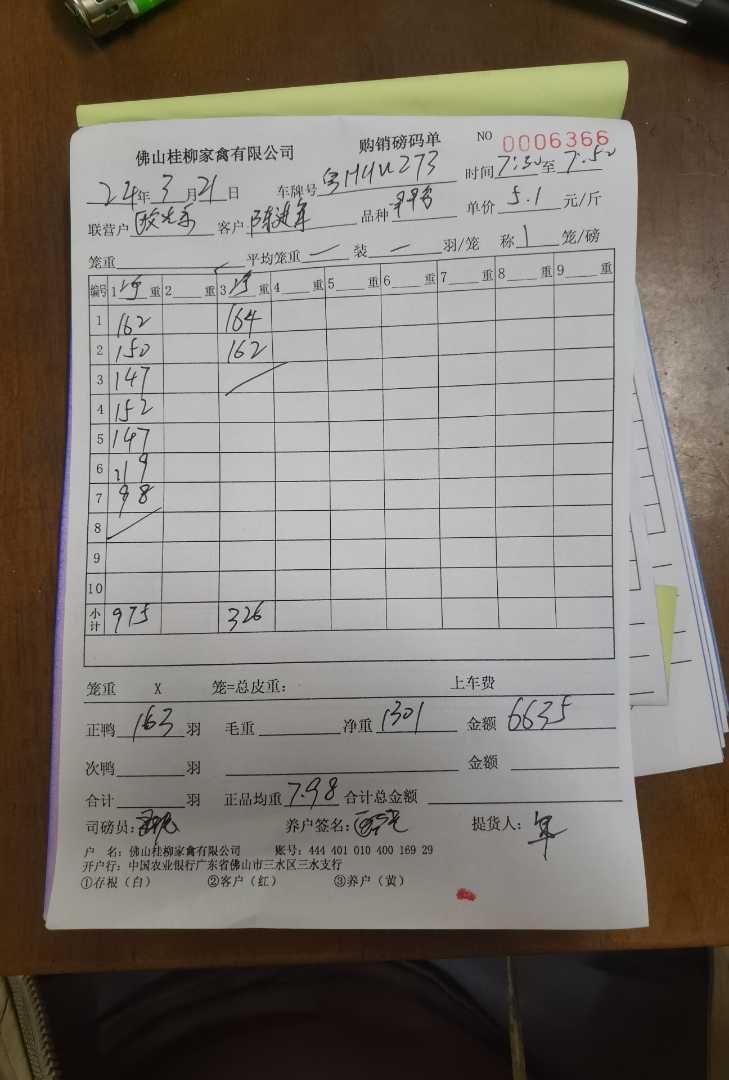 佛山桂柳家禽有限公司 购销磅码单 NO 0006366
24年3月21日 车牌号 粤H4U273 时间7:30至7:50
联营户 客户 陈进年 品种 单价 5.1 元/斤
笼重 平均笼重 一 装 一 羽/笼 称 1 笼/磅
编号 1 净 重 2 重 3 净 重 4 重 5 重 6 重 7 重 8 重 9 重
1 162 164
2 150 162
3 147
4 152
5 147
6 119
7 98
8
9
10
小计 975 326
笼重 X 笼=总皮重: 上车费
正鸭 163 羽 毛重 净重 1301 金额 6635
次鸭 羽 金额
合计 羽 正品均重 7.98 合计总金额
司磅员: 养户签名: 提货人: 年
户 名: 佛山桂柳家禽有限公司 账号: 444 401 010 400 169 29
开户行: 中国农业银行广东省佛山市三水区三水支行
①存根(白) ②客户(红) ③养户(黄)